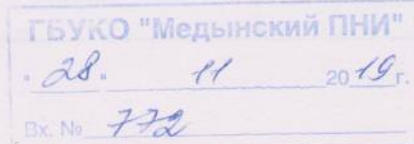 ГБУКО "Медынский ПНИ"
"28" 11 2019 г.
Вх. № 772